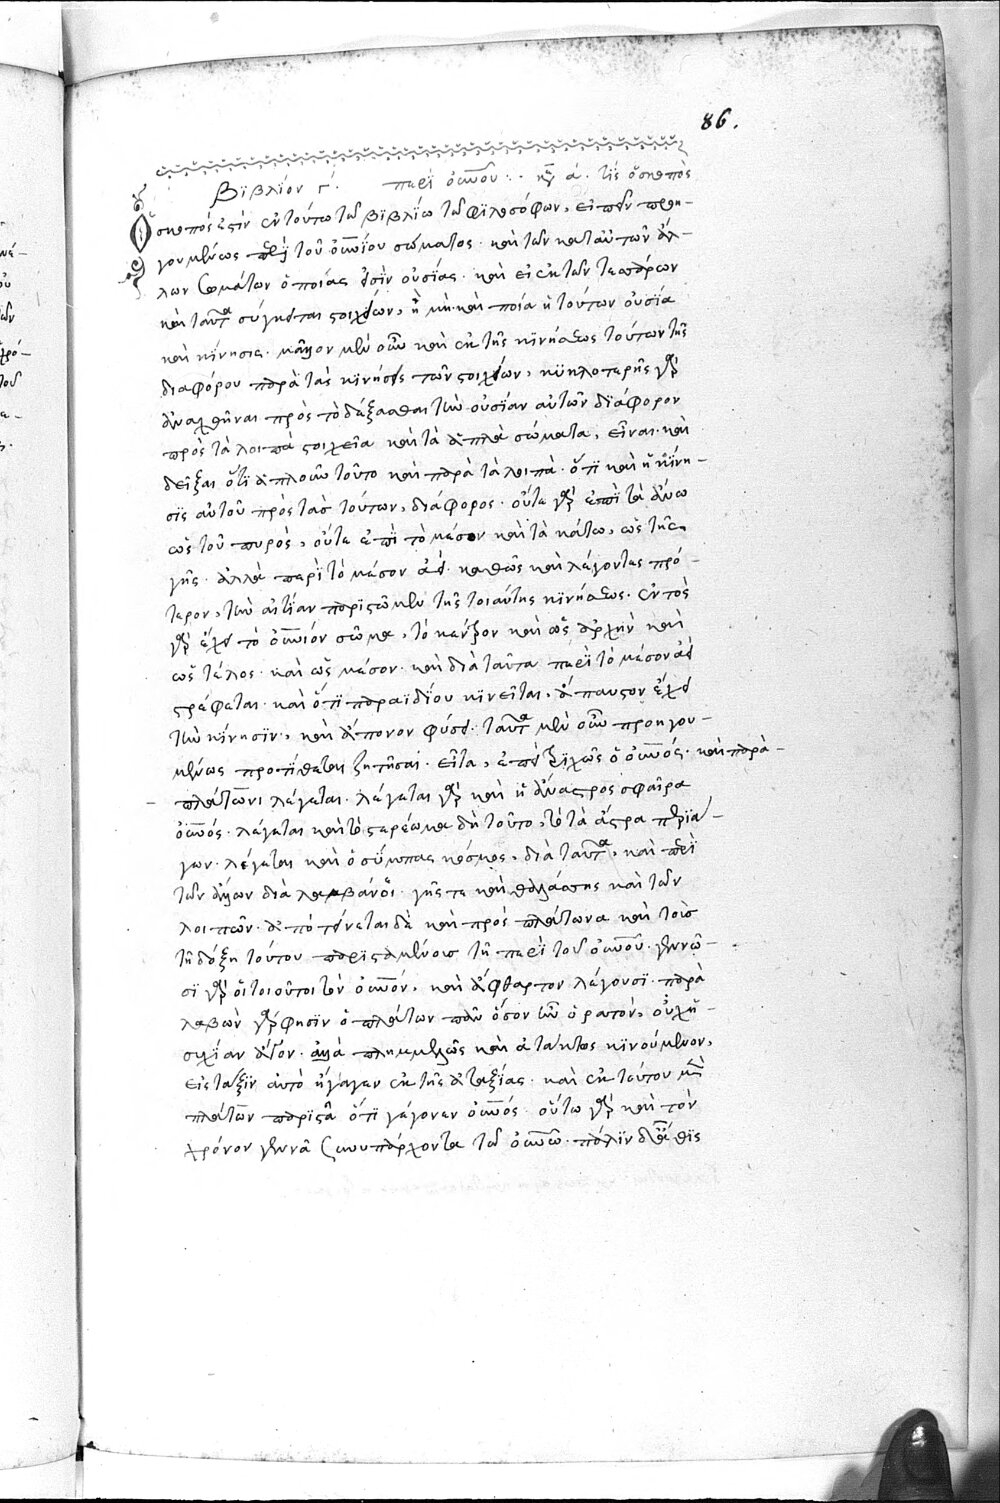 86.
Βιβλίον γʹ. περὶ οὐνοῦ. κεφ ά. τίς ὁ σκοπὸς
Ὁ σκοπός ἐστιν ἐν τούτω τῶ βιβλίω τῶ φιλοσόφω, εἰπεῖν προη-
γουμένως περὶ τοῦ οὐνίου σώματος. καὶ τῶν κατ αὐτῶν ἄλ-
λων σωμάτων ὁποίας εἰσὶν οὐσίας. καὶ εἰ ἐκ τῶν τεσσάρων
καὶ ταῦτα σύγκειται στοιχείων, ἢ μὴ. καὶ ποία ἡ τούτων οὐσία
καὶ κίνησις. μᾶλλον μὲν οὖν καὶ ἐκ τῆς κινήσεως τούτων τῆς
διαφόρου παρὰ τὰς κινήσεις τῶν στοιχείων, κυκλοτερῆς γὰρ
ἀναχθῆναι πρὸς τὸ δείξασθαι τὴν οὐσίαν αὐτῶν διάφορον
πρὸς τὰ λοιπὰ στοιχεῖα καὶ τὰ ἁπλᾶ σώματα, εἶναι. καὶ
δεῖξαι ὅτι ἁπλοῦν τοῦτο καὶ παρὰ τὰ λοιπὰ. ὅτι καὶ ἡ κίνη-
σις αὐτοῦ πρὸς τὰσ τούτων, διάφορος. οὔτε γὰρ ἐπὶ τὰ ἄνω
ὡς τοῦ πυρὸς, οὔτε ἐπὶ τὸ μέσον καὶ τὰ κάτω, ὡς τῆς
γῆς. ἀλλὰ περὶ τὸ μέσον ἀεί. καθὼς καὶ λέγοντες πρό-
τερον, τὴν αἰτίαν παριστῶμεν τῆς τοιαύτης κινήσεως. ἐντὸς
γὰρ ἔχει τὸ οὐνιόν σῶμα, τὸ κέντρον καὶ ὡς ἀρχὴν καὶ
ὡς τέλος. καὶ ὡς μέσον. καὶ διὰ ταῦτα περὶ τὸ μέσον ἀεὶ
στρέφεται. καὶ ὅτι παραϊδίου κινεῖται, ἄπαυστον ἔχει
τὴν κίνησιν, καὶ ἄπονον φύσει. ταῦτα μὲν οὖν προηγου-
μένως προτίθεται ζητῆσαι. εἶτα, ἐπεὶ τριχῶς ὁ οὐνός. καὶ παρὰ-
πλάτωνι λέγεται. λέγεται γὰρ καὶ ἡ ἄναστρος σφαῖρα
οὐνός. λέγεται καὶ τὸ στερέωμα δὴ τοῦτο, τὸ τὰ ἄστρα περιά-
γων. λέγεται καὶ ὁ σύμπας κόσμος, διὰ ταῦτα, καὶ περὶ
τῶν ἄλλων διαλαμβάνει. γῆς τε καὶ θαλάσσης καὶ τῶν
λοιπῶν. ἀποτείνεται δὲ καὶ πρὸς πλάτωνα καὶ τοὺσ
τῆ δόξη τούτου παρισταμένουσ τῆ περὶ τοῦ οὐνοῦ. γεννῶ-
σι γὰρ οἱ τοιοῦτοι τὸν οὐνόν, καὶ ἄφθαρτον λέγουσι. παρα
λαβὼν γάρ φησιν ὁ πλάτων πᾶν ὅσον ἦν ὁρατόν, οὐχ ἡ-
συχίαν ἄγον. ἀλλὰ πλημμελῶς καὶ ἀτάκτως κινούμενον,
εἰς τάξιν αὐτὸ ἤγαγεν ἐκ τῆς ἀταξίας. καὶ ἐκ τούτου μὲν
πλάτων παριστᾶ ὅτι γέγονεν οὐνός. οὕτω γὰρ καὶ τὸν
χρόνον γεννᾶ συνυπάρχοντα τῶ οὐνῶ. πάλιν